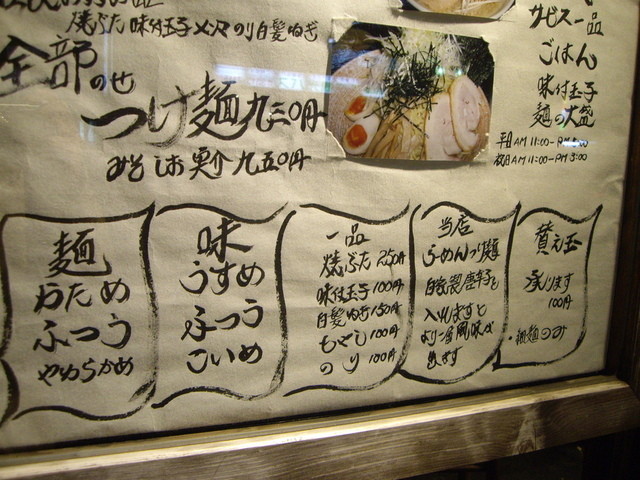 焼ぶた 味付玉子 メンマ のり 白髪ねぎ
全部のせ
つけ麺 九三〇円
みそ しお 実介 九五〇円
サービス一品
ごはん
味付玉子
麺の大盛
平日 AM 11:00-PM
祝日 AM 11:00-PM 5:00
麺
かため
ふつう
やわらかめ
味
うすめ
ふつう
こいめ
一品
焼ぶた 250円
味付玉子 100円
白髪ねぎ 150円
もやし 100円
のり 100円
当店
らーめんつけ麺
自家製唐辛子を
入れますと
より一層風味が
出ます
替え玉
承ります
100円
・細麺のみ